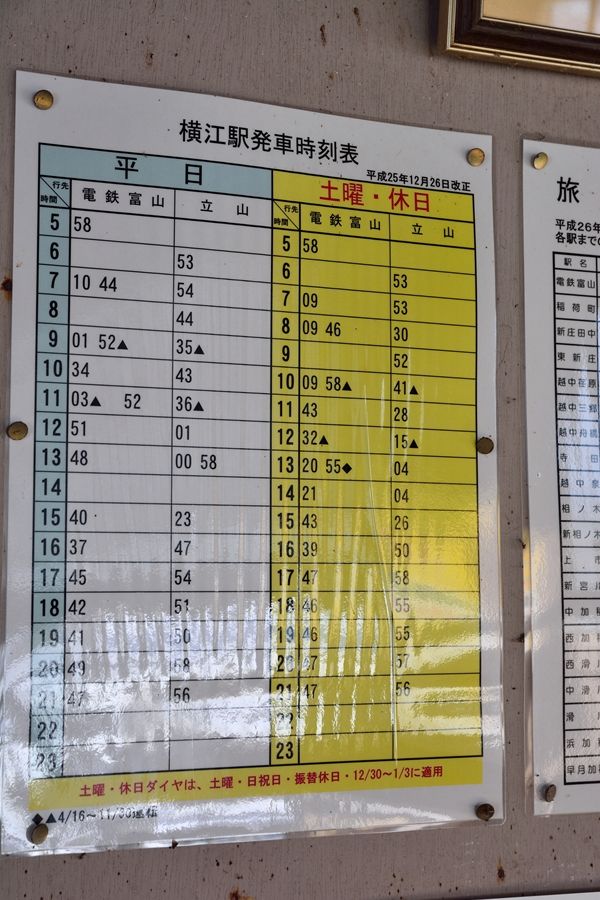 横江駅発車時刻表
平成25年12月26日改正
平日 土曜・休日
行先 時間 電鉄富山 立山 行先 時間 電鉄富山 立山
5 58 5 58
6 53 6 53
7 10 44 54 7 09 53
8 44 8 09 46 30
9 01 52▲ 35▲ 9 52
10 34 43 10 09 58▲ 41▲
11 03▲ 52 36▲ 11 43 28
12 51 01 12 32▲ 15▲
13 48 00 58 13 20 55◆ 04
14 14 21 04
15 40 23 15 43 26
16 37 47 16 39 50
17 45 54 17 47 58
18 42 51 18 46 55
19 41 50 19 46 55
20 49 58 20 47 57
21 47 56 21 47 56
22 22
23 23
土曜・休日ダイヤは、土曜・日祝日・振替休日・12/30～1/3に適用
◆▲4/16～11/30運転
旅
平成26年
各駅まで
駅名
電鉄富山
稲荷町
新庄田中
東新庄
越中荏原
越中三郷
越中舟橋
寺田
越中泉
相ノ木
新相ノ木
上市
新宮川
中加
西加
西滑
中滑
滑
浜加
早月加